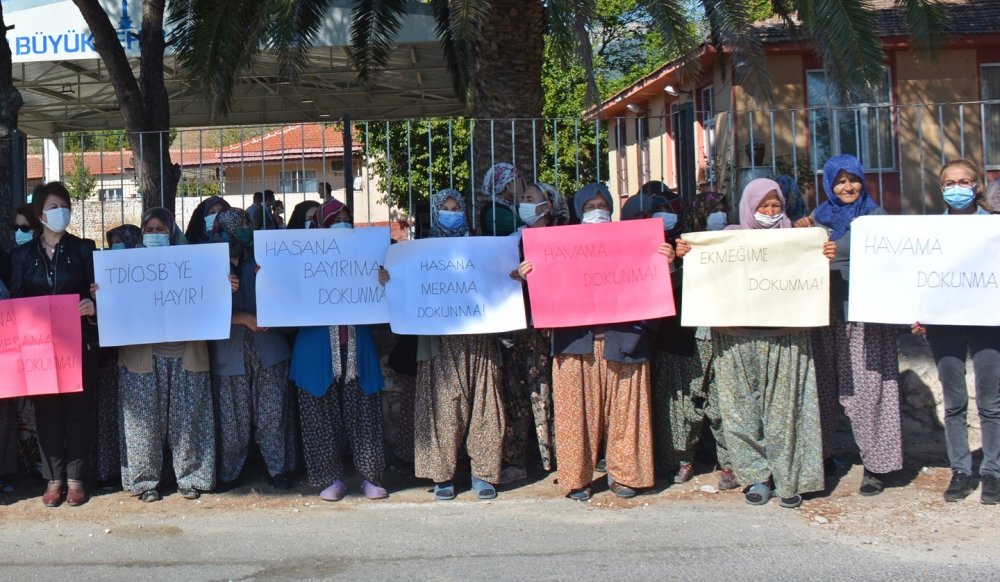 BÜYÜK
NA
MERAMA
DOKUNMA!
TDİOSB'YE
HAYIR!
HASANA
BAYIRIMA
DOKUNMA
HASANA
MERAMA
DOKUNMA!
HAVAMA
DOKUNMA!
EKMEĞİME
DOKUNMA!
HAVAMA
DOKUNMA!